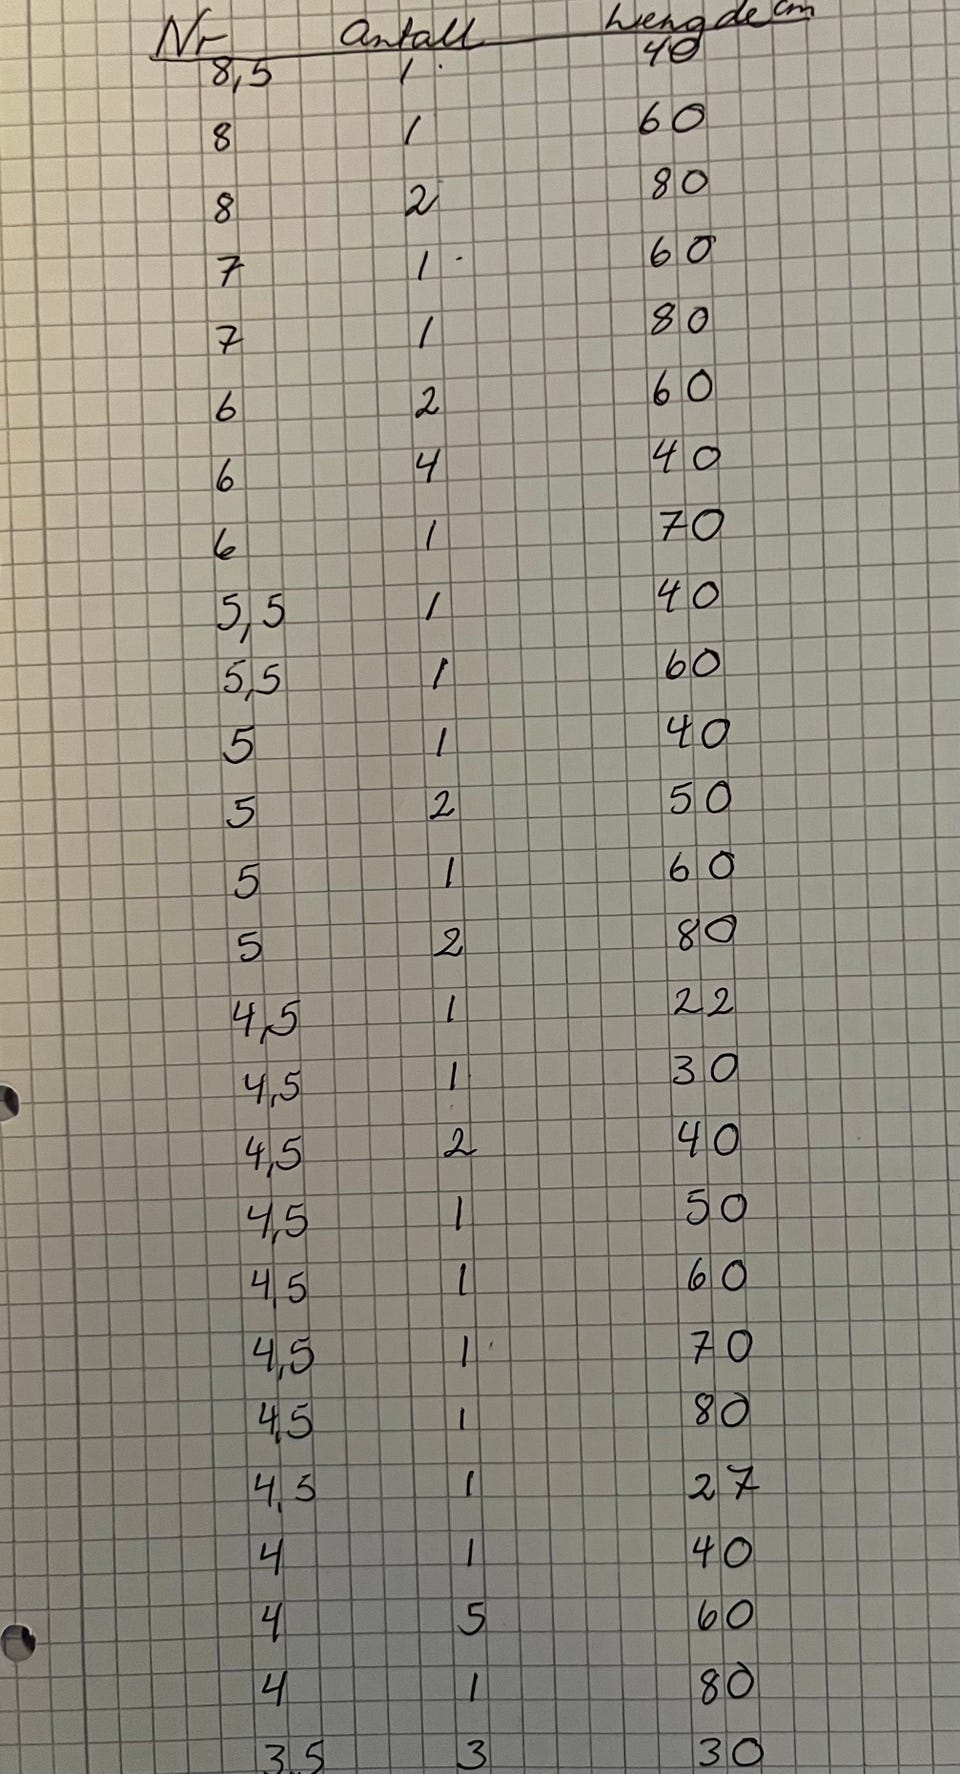 Nr Antall Lengde cm
8,5 1 40
8 1 60
8 2 80
7 1 60
7 1 80
6 2 60
6 4 40
6 1 70
5,5 1 40
5,5 1 60
5 1 40
5 2 50
5 1 60
5 2 80
4,5 1 22
4,5 1 30
4,5 2 40
4,5 1 50
4,5 1 60
4,5 1 70
4,5 1 80
4,5 1 27
4 1 40
4 5 60
4 1 80
3,5 3 30